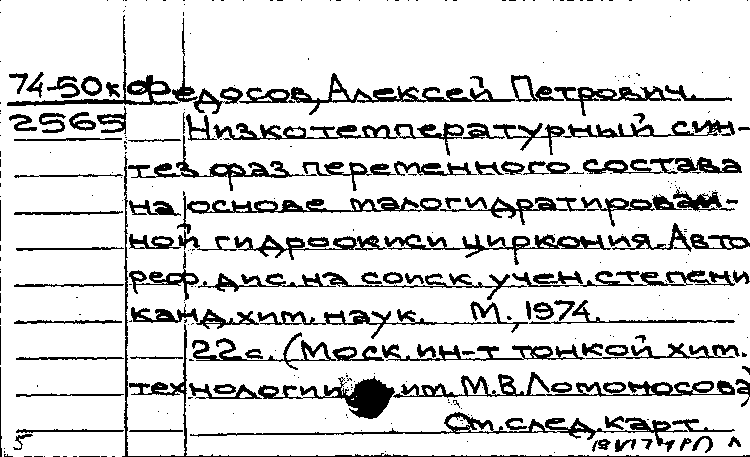 74-50к Федосов, Алексей Петрович.
2565 Низкотемпературный син-
тез фаз переменного состава
на основе малогидратирован-
ной гидроокиси циркония. Авто
реф. дис. на соиск. учен. степени
канд. хим. наук. М., 1974.
22с. (Моск. ин-т тонкой хим.
технологии им. М.В. Ломоносова)
См. след. карт.
5